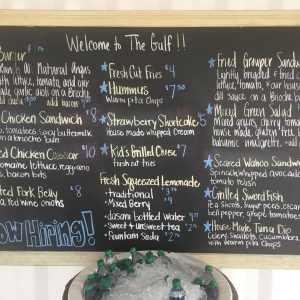 Welcome to The Gulf !!
Burger $15
All Natural Angus
with lettuce, tomato, onion
garlic aioli on a Brioche
add bacon
Chicken Sandwich $8
tomatoes, spicy buttermilk
on a brioche bun
Chicken Caesar $10
romaine lettuce, reggiano
bacon bits
Pork Belly $8
red wine onions
Now Hiring!
Fresh Cut Fries $4
Hummus $7.50
Warm pita Chips
Strawberry Shortcake $5
House made whipped Cream
Kid's Grilled Cheese $7
fresh cut fries
Fresh Squeezed Lemonade
- traditional
- Mixed Berry
- dasani bottled water
- sweet + unsweet tea
- Fountain Soda
Fried Grouper Sandwich
Lightly breaded + fried
lettuce, tomato,
dill sauce on a Brioche
Mixed Green Salad
Mixed greens, cherry tomatoes
house made
balsamic vinaigrette
Seared Wahoo Sandwich
Spinach, whipped avocado
tomato relish
Grilled Sword Fish
bell pepper, grape tomatoes
House Made Tuna Dip
Celery, Shallots, Cucumbers
with warm pita Chips